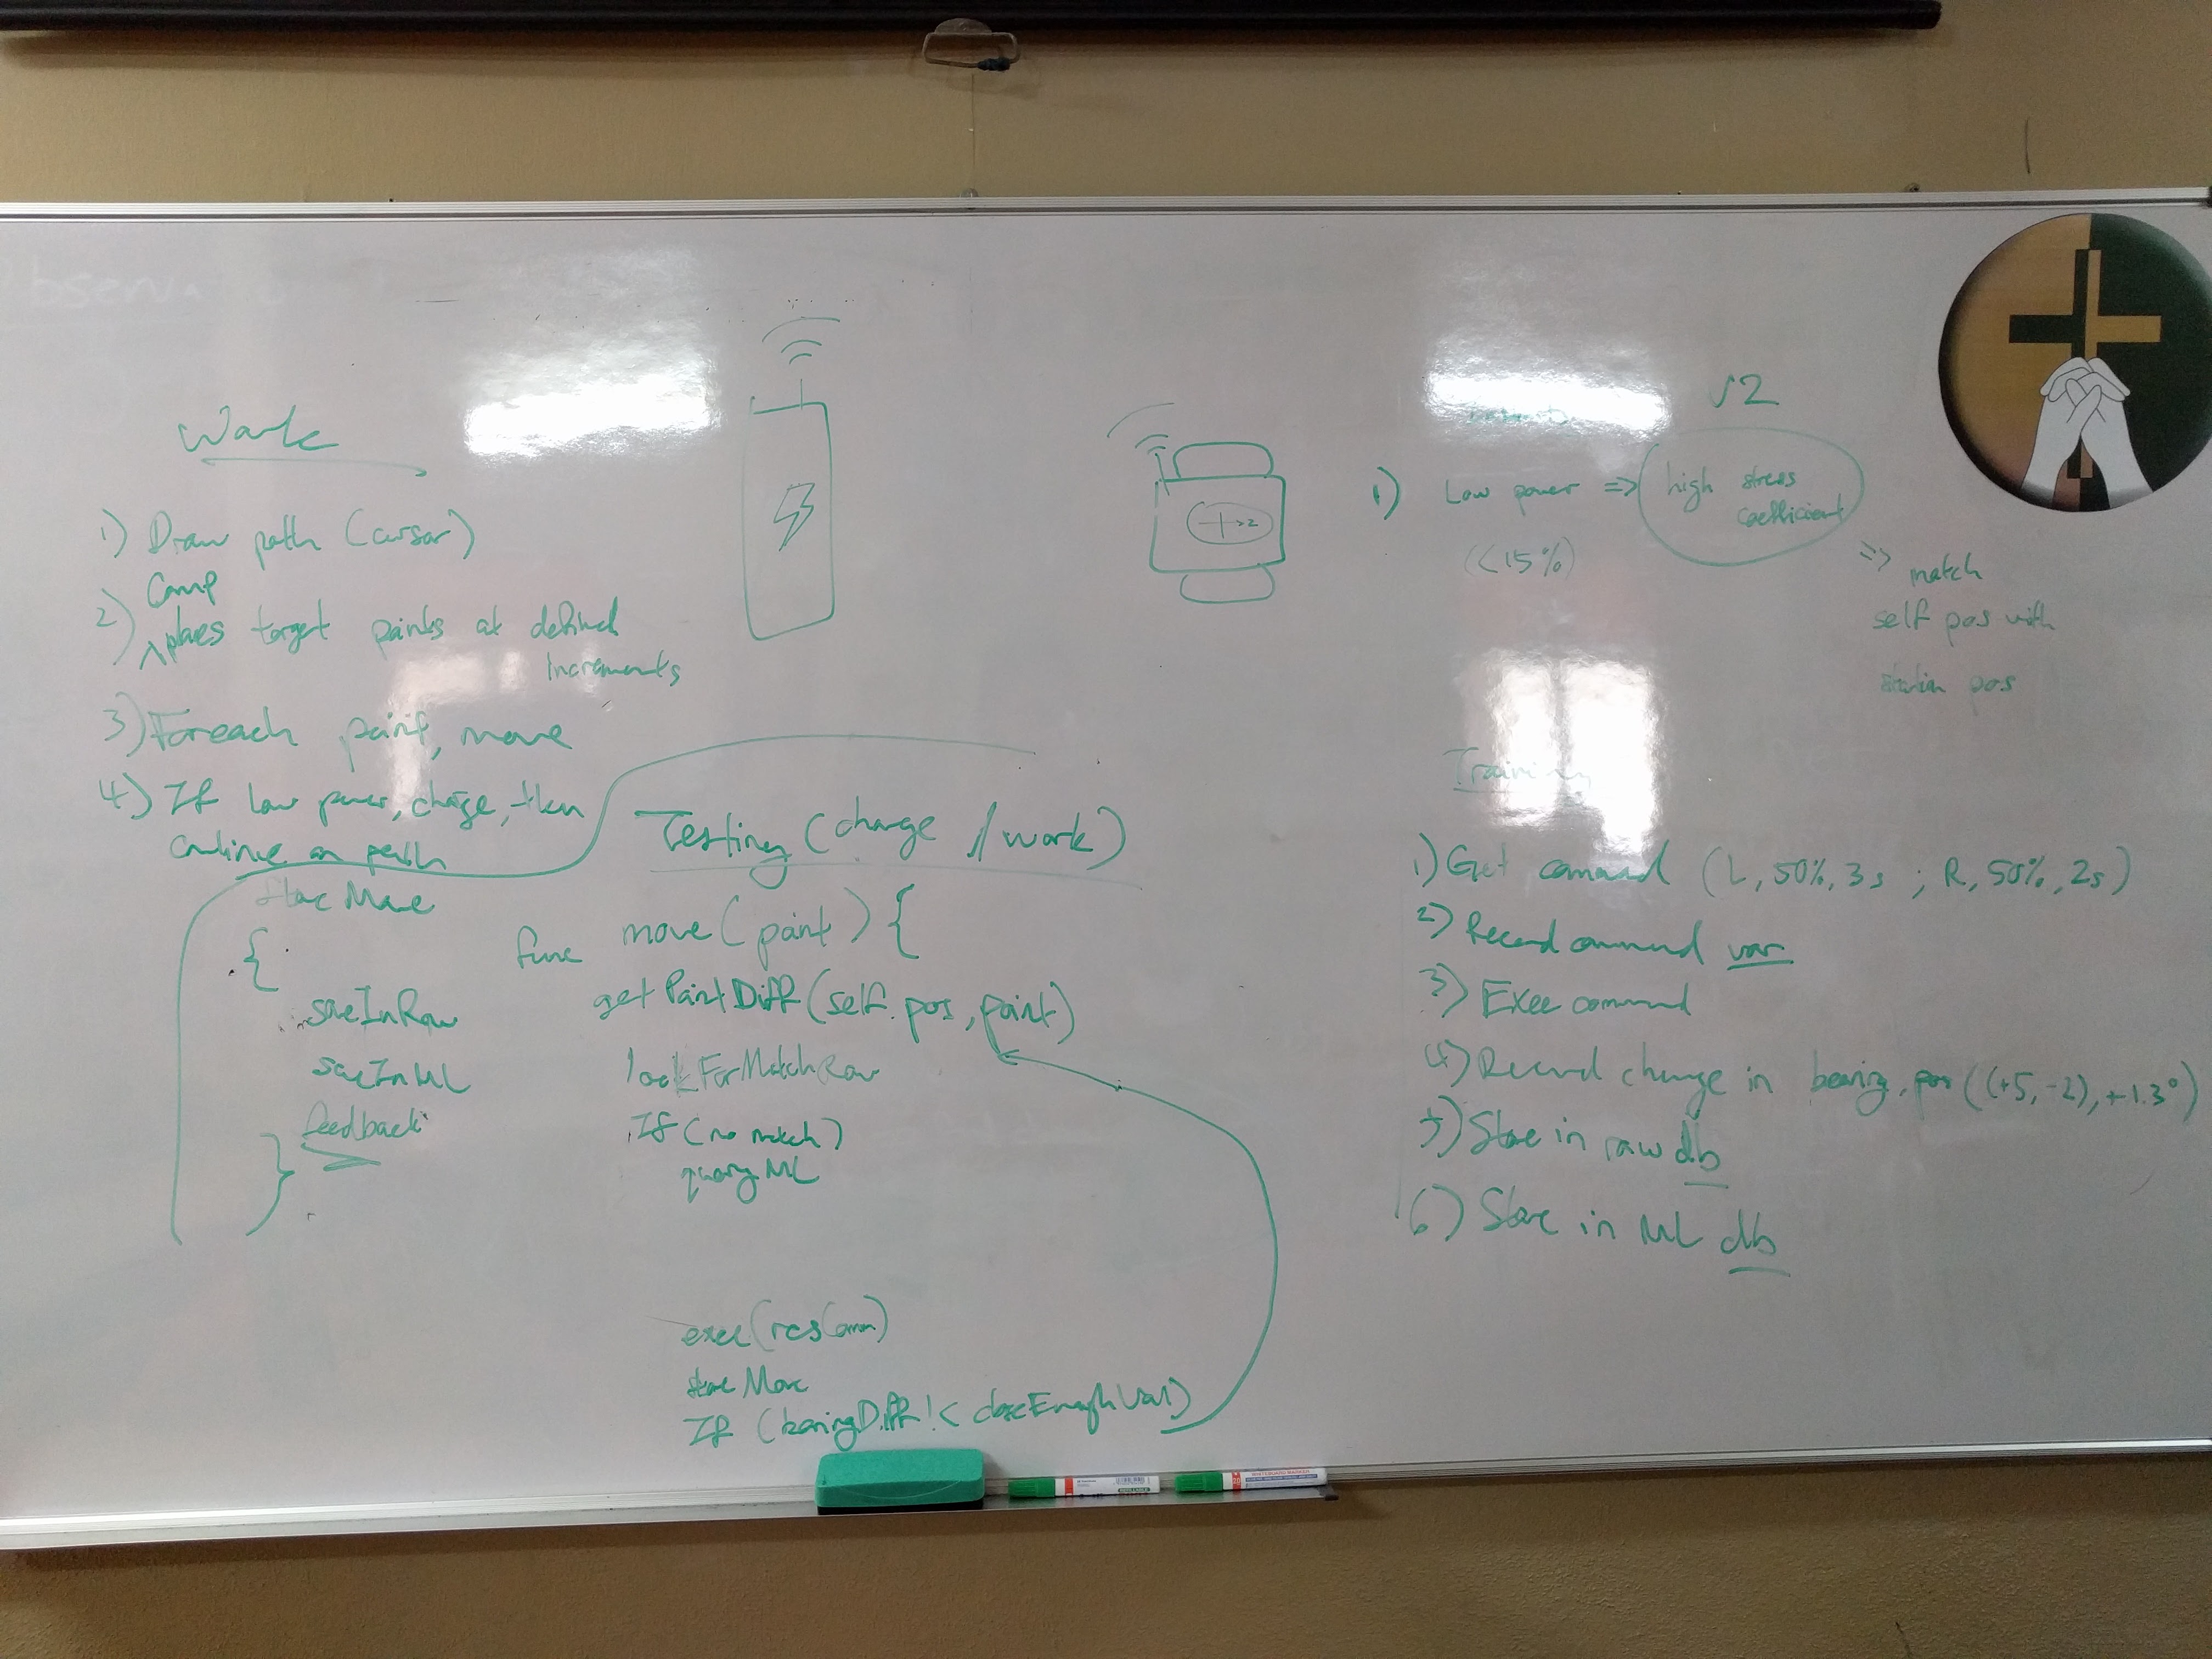 Work
1) Draw path (cursor)
Comp
2) ^ places target points at defined
increments
3) Foreach point, move
4) If low power, charge, then
continue on path
store Move
{
saveInRaw
saveInML
feedback
}
Testing (charge / work)
func move(point) {
getPointDiff(self.pos, point)
lookForMatchRaw
If (no match)
query ML
exec(resComm)
store Move
If (bearingDiff !< closeEnoughVal)
√2
1) Low power => high stress
coefficient
(<15%)
=> match
self pos with
station pos
Training
1) Get command (L, 50%, 3s ; R, 50%, 2s)
2) Record command var
3) Exec command
4) Record change in bearing, pos ((+5, -2), +1.3°)
5) Store in raw db
6) Store in ML db
WHITEBOARD MARKER